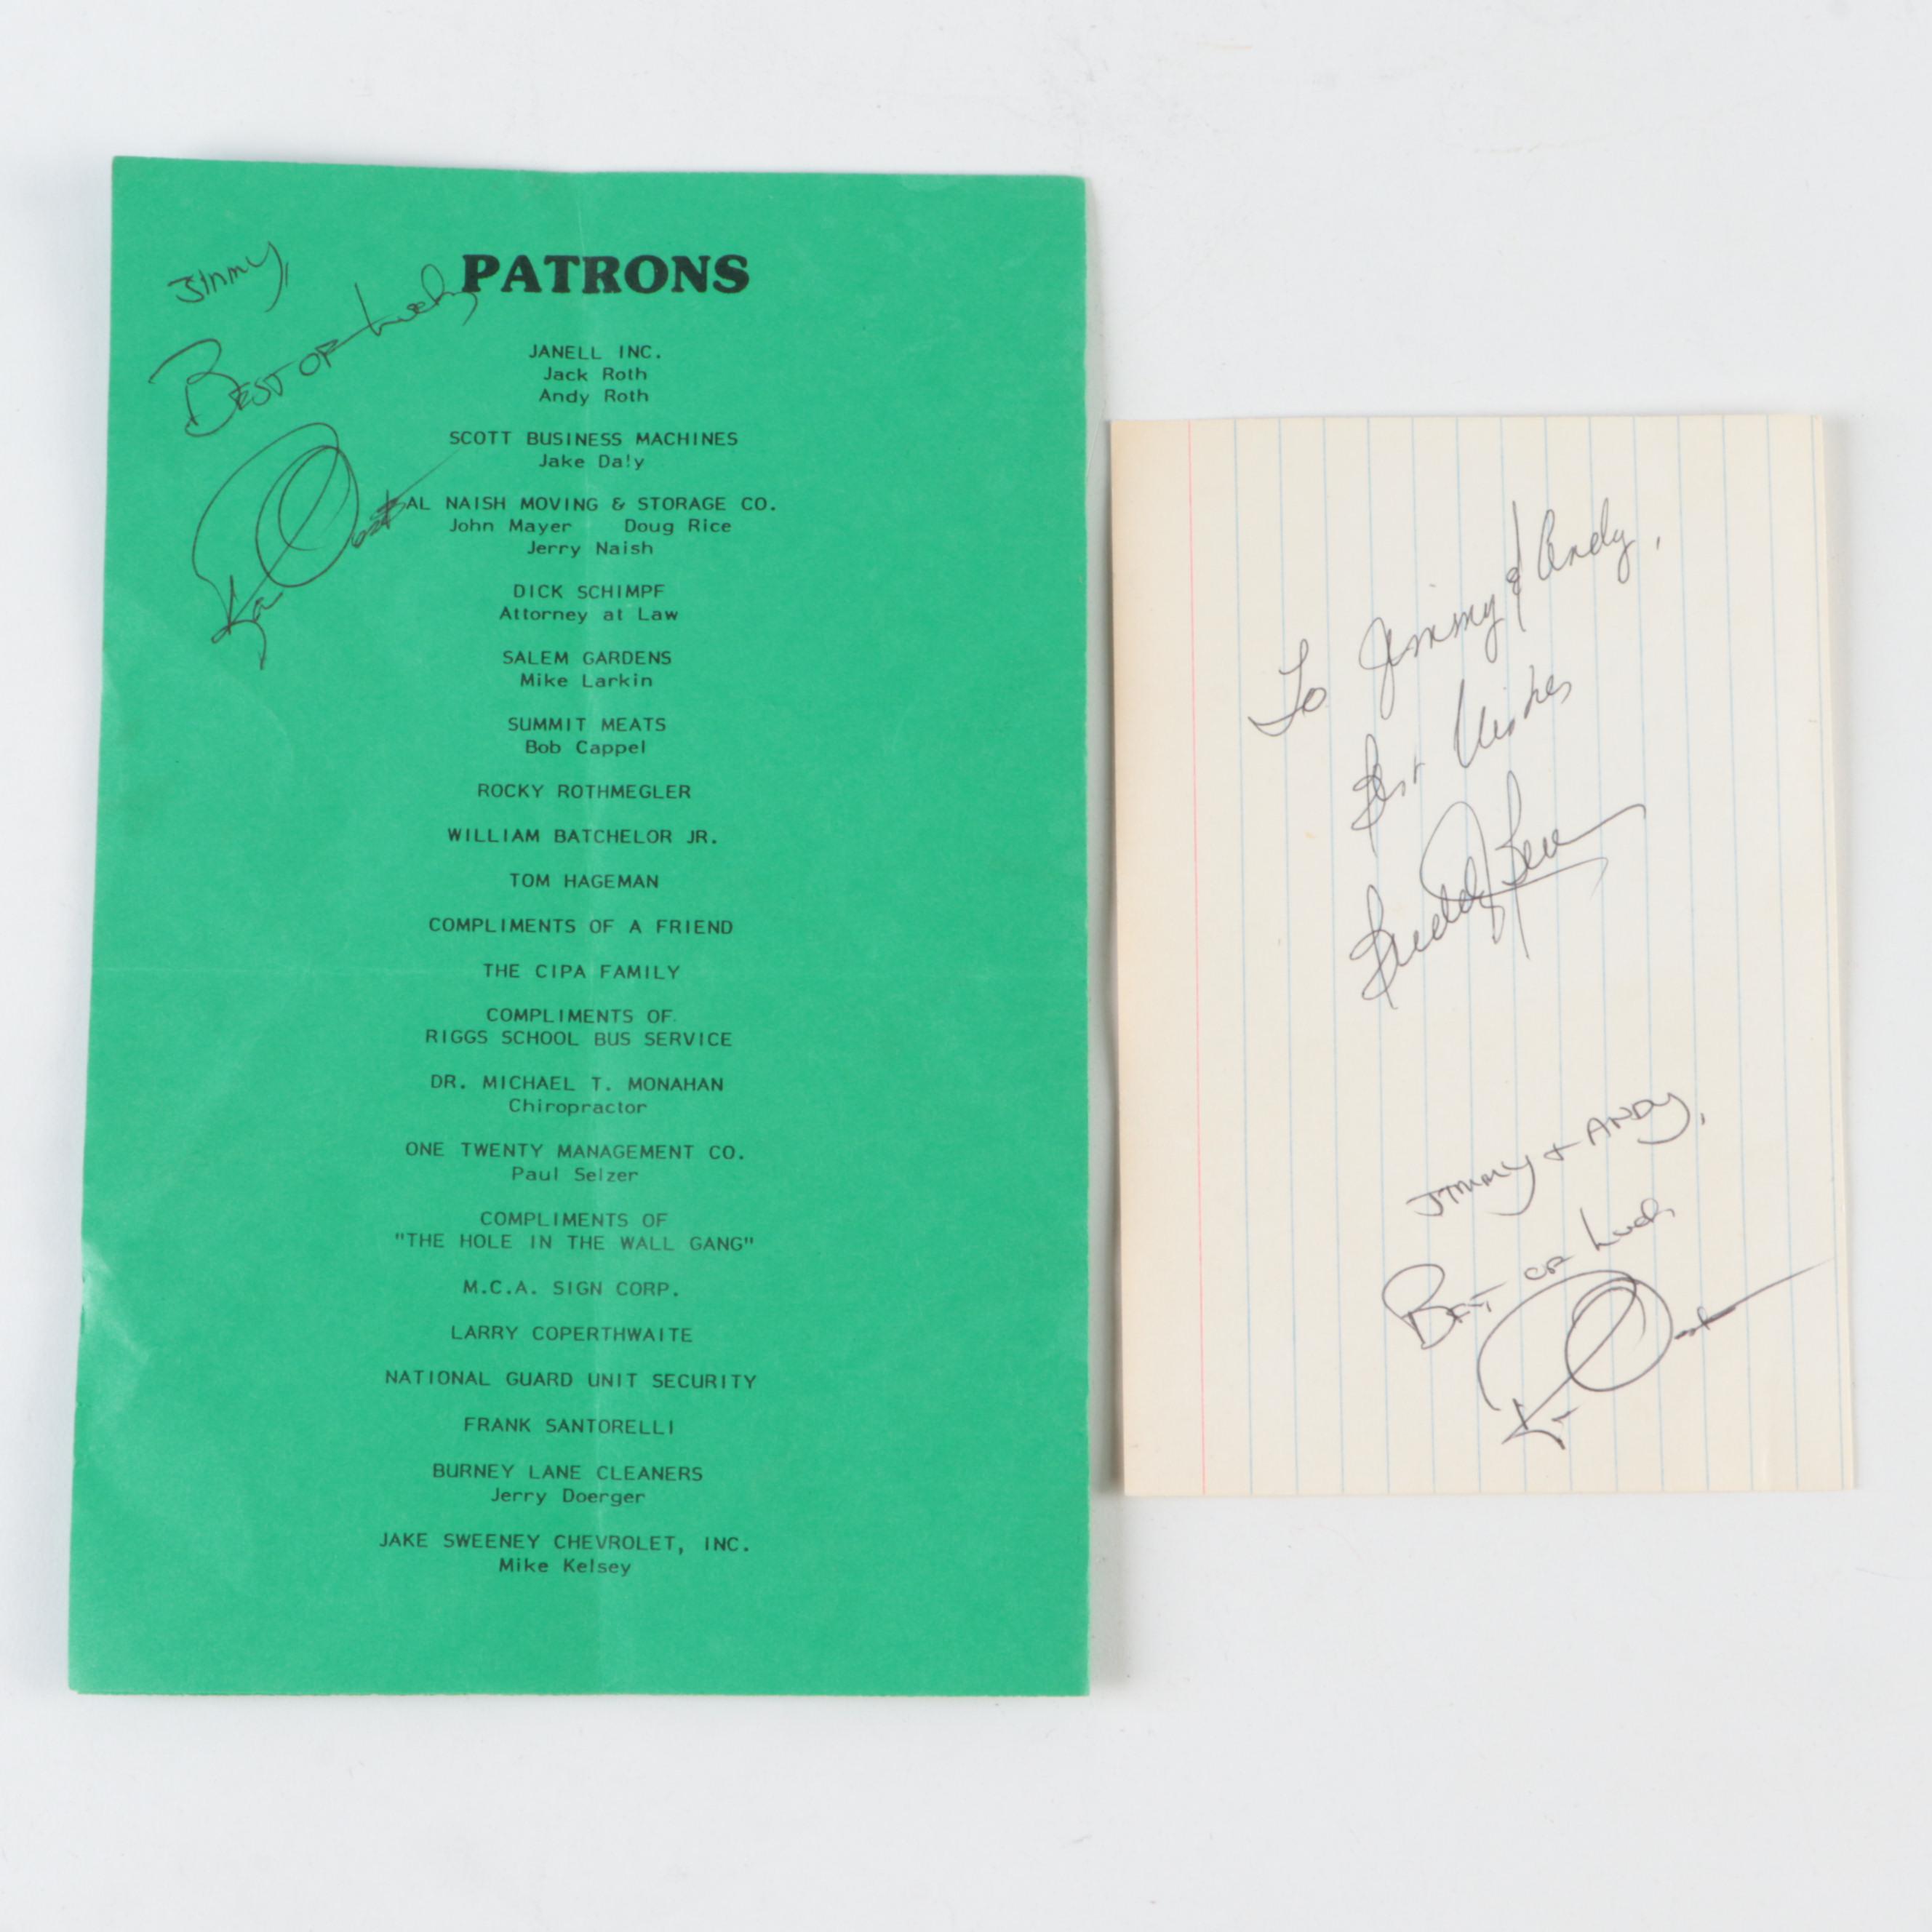 Jimmy,
Best of Luck
PATRONS
JANELL INC.
Jack Roth
Andy Roth
SCOTT BUSINESS MACHINES
Jake Daly
AL NAISH MOVING & STORAGE CO.
John Mayer Doug Rice
Jerry Naish
DICK SCHIMPF
Attorney at Law
SALEM GARDENS
Mike Larkin
SUMMIT MEATS
Bob Cappel
ROCKY ROTHMEGLER
WILLIAM BATCHELOR JR.
TOM HAGEMAN
COMPLIMENTS OF A FRIEND
THE CIPA FAMILY
COMPLIMENTS OF
RIGGS SCHOOL BUS SERVICE
DR. MICHAEL T. MONAHAN
Chiropractor
ONE TWENTY MANAGEMENT CO.
Paul Selzer
COMPLIMENTS OF
"THE HOLE IN THE WALL GANG"
M.C.A. SIGN CORP.
LARRY COPERTHWAITE
NATIONAL GUARD UNIT SECURITY
FRANK SANTORELLI
BURNEY LANE CLEANERS
Jerry Doerger
JAKE SWEENEY CHEVROLET, INC.
Mike Kelsey
To Jimmy & Andy,
Best Wishes
Buddy Bell
Jimmy + Andy,
Best of Luck